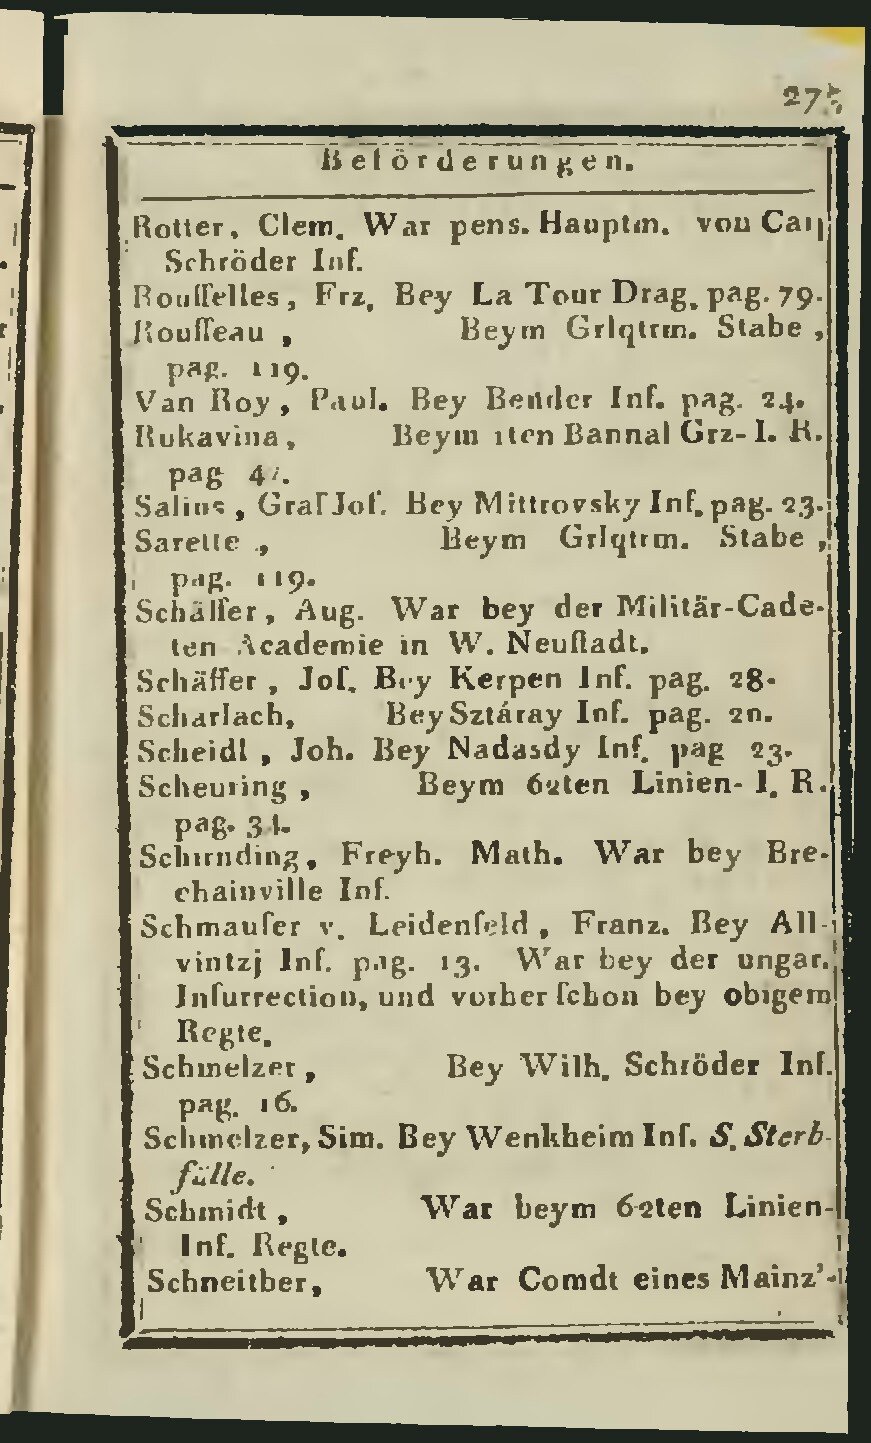 275
Beförderungen.
Rotter, Clem. War pens. Hauptm. von Carl
Schröder Inf.
Rouſſelles, Frz. Bey La Tour Drag. pag. 79.
Rouſſeau, Beym Grlqtrm. Stabe,
pag. 119.
Van Roy, Paul. Bey Bender Inf. pag. 24.
Rukavina, Beym 1ten Bannal Grz-I. R.
pag
Salins, Graf Joſ. Bey Mittrovsky Inf. pag. 23.
Sarette, Beym Grlqtrm. Stabe,
pag. 119.
Schäffer, Aug. War bey der Militär-Cade-
ten Academie in W. Neuſtadt.
Schäffer, Joſ. Bey Kerpen Inf. pag. 28.
Scharlach, Bey Sztáray Inf. pag. 20.
Scheidl, Joh. Bey Nadasdy Inf. pag 23.
Scheuring, Beym 62ten Linien-I. R.
pag. 34.
Schirnding, Freyh. Math. War bey Bre-
chainville Inf.
Schmauſer v. Leidenfeld, Franz. Bey All-
vintzj Inf. pag. 13. War bey der ungar.
Inſurrection, und vorher ſchon bey obigem
Regte.
Schmelzer, Bey Wilh. Schröder Inf.
pag. 16.
Schmelzer, Sim. Bey Wenkheim Inf. S. Sterb-
fälle.
Schmidt, War beym 62ten Linien-
Inf. Regte.
Schneitber, War Comdt eines Mainz'-